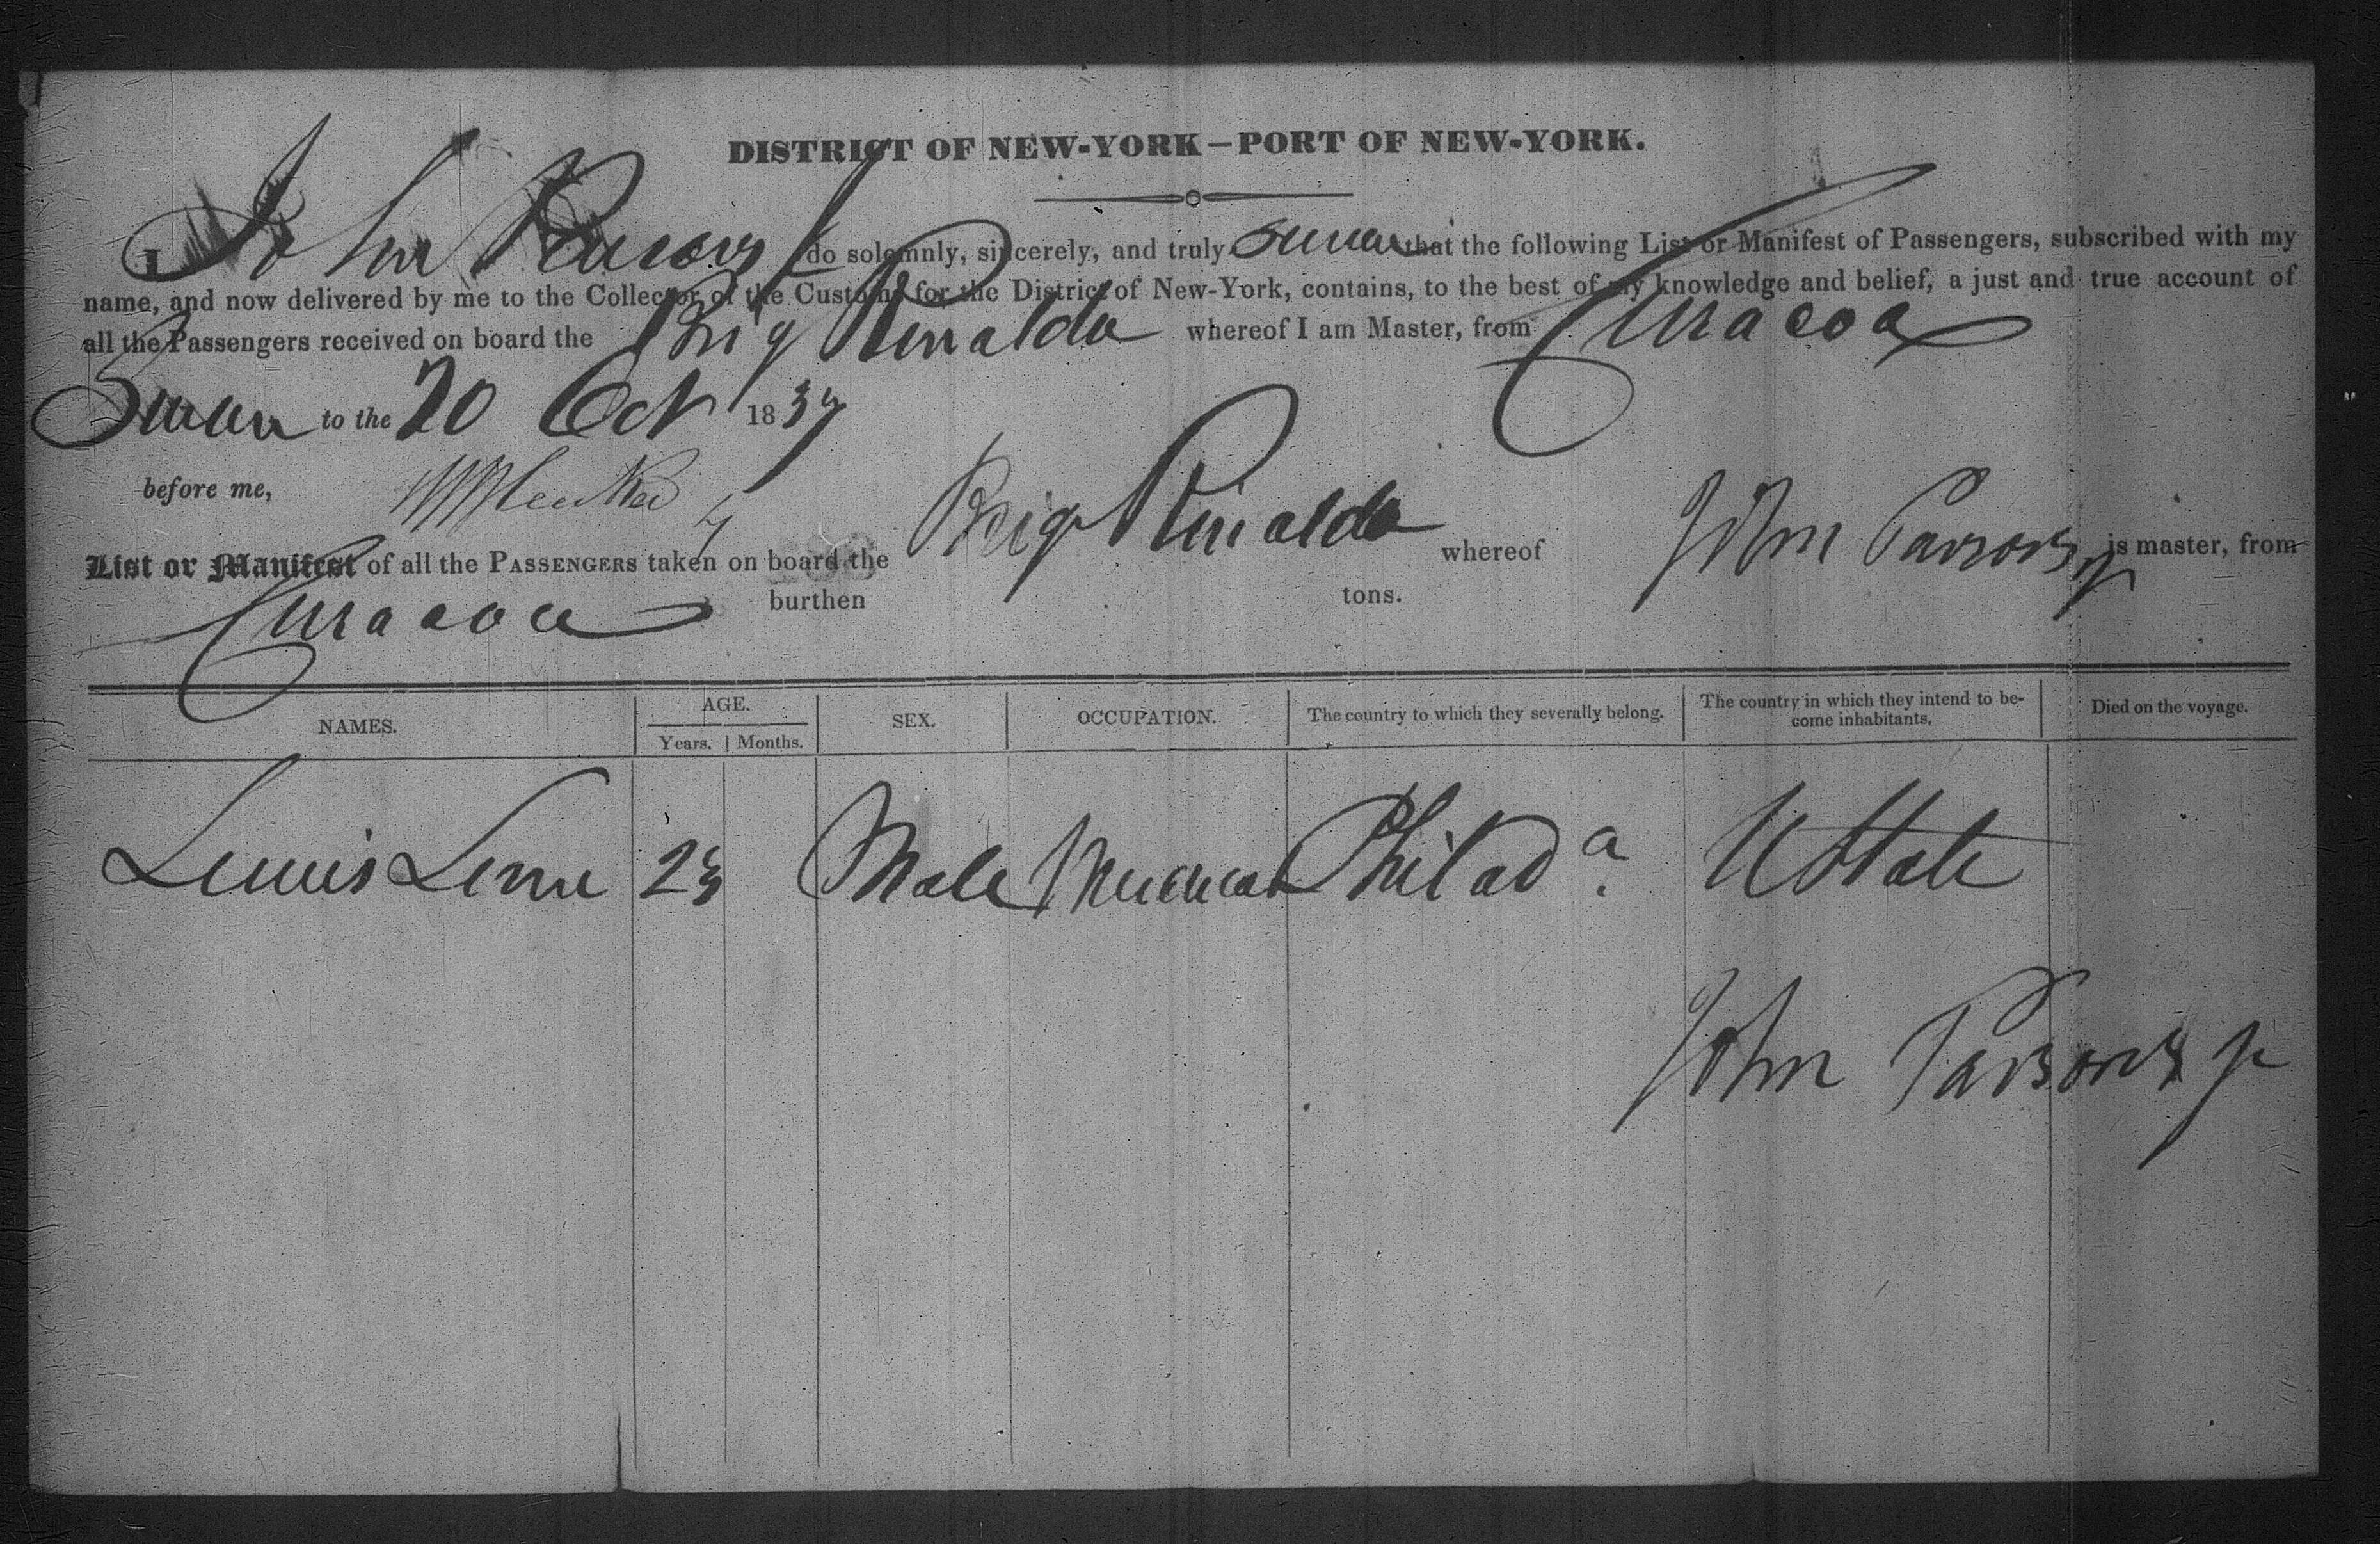 DISTRICT OF NEW-YORK—PORT OF NEW-YORK.
I John Parsons Jr do solemnly, sincerely, and truly swear that the following List or Manifest of Passengers, subscribed with my
name, and now delivered by me to the Collector of the Customs for the District of New-York, contains, to the best of my knowledge and belief, a just and true account of
all the Passengers received on board the Brig Rinaldo whereof I am Master, from Curacoa
Sworn to the 20 Oct 1837
before me,
List or Manifest of all the PASSENGERS taken on board the Brig Rinaldo whereof John Parsons Jr is master, from
Curacoa burthen tons.
NAMES. AGE. Years. Months. SEX. OCCUPATION. The country to which they severally belong. The country in which they intend to become inhabitants. Died on the voyage.
Lewis 23 Male Philad a. U State
John Parsons Jr